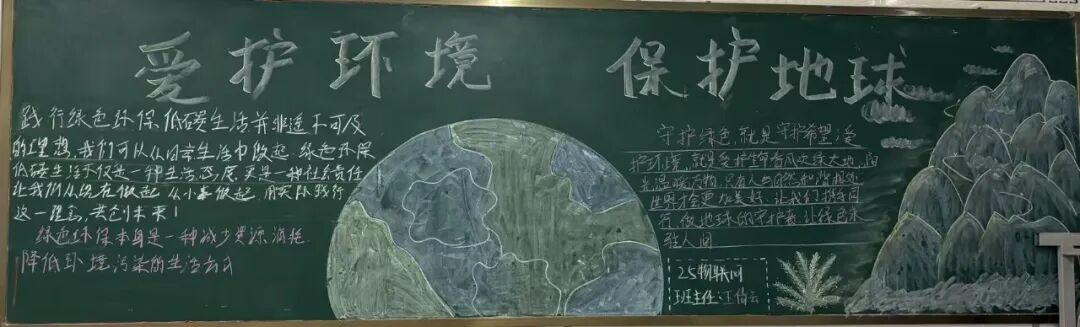 爱护环境 保护地球
践行绿色环保,低碳生活并非遥不可及
的理想,我们可从日常生活中做起,绿色环保
低碳生活不仅是一种生活态度,更是一种社会责任
让我们从现在做起,从小事做起,用实际践行
这一理念,共创未来!
绿色环保本身是一种减少资源消耗
降低环境污染的生活方式
守护绿色,就是守护希望,爱
护环境,就是爱护生命,春风吹绿大地,阳
光温暖万物,只有人与自然和谐相处
世界才会更加美好,让我们携手同
行,做地球的守护者,让绿色永
驻人间
25物联网
班主任:王倩云